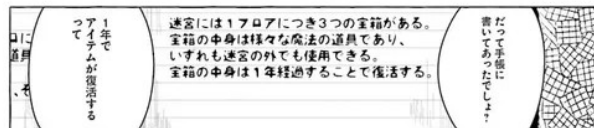 だって手帳に
書いてあったでしょ？
迷宮には１フロアにつき３つの宝箱がある。
宝箱の中身は様々な魔法の道具であり、
いずれも迷宮の外でも使用できる。
宝箱の中身は１年経過することで復活する。
１年で
アイテムが復活する
って